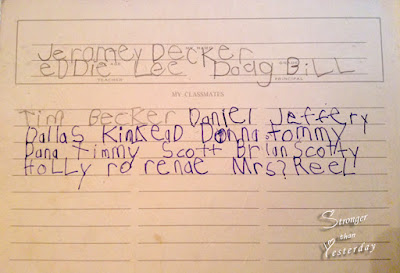 Jeromey Decker
eDDie Lee Doug BiLL
TEACHER PRINCIPAL
MY CLASSMATES
Tim Becker Daniel Jeffery
Dallas Kinkead Donna tommy
Dana Timmy Scott Brian Scotty
HoLLy ro renae Mrs? ReeL
Stronger
than
Yesterday